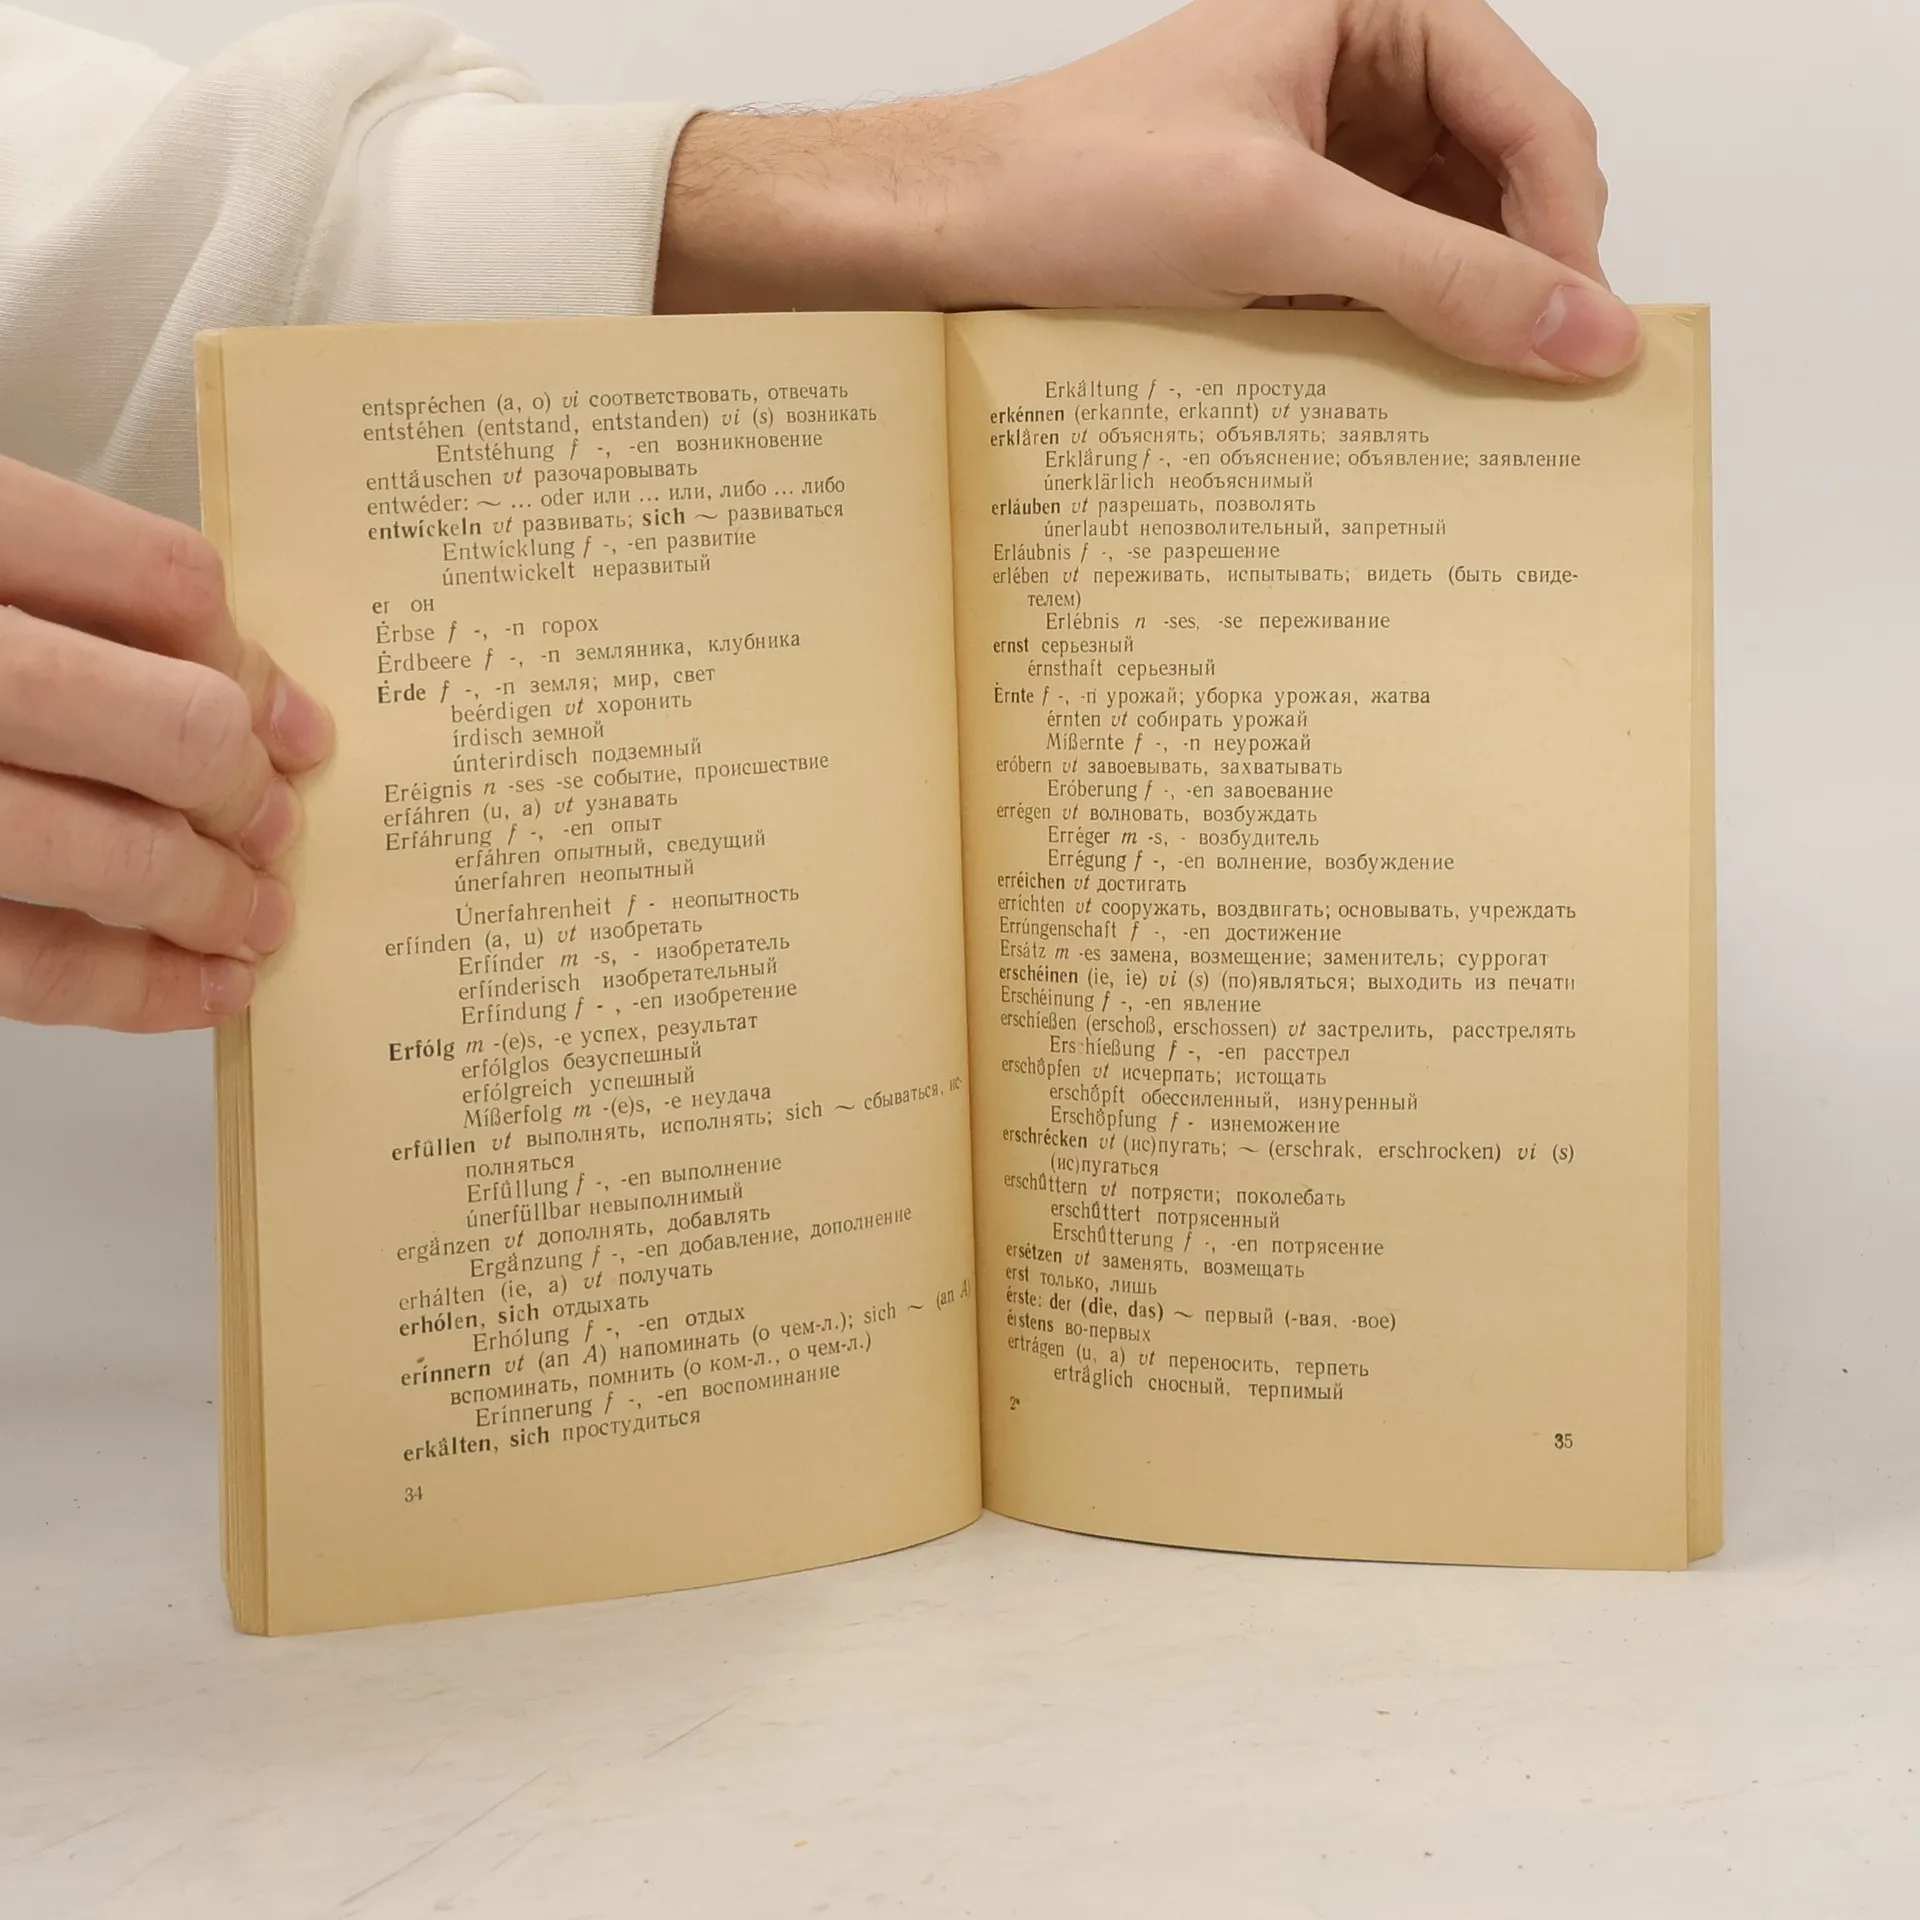 entspréchen (a, o) vi соответствовать, отвечать
entstéhen (entstand, entstanden) vi (s) возникать
Entstéhung f -, -en возникновение
enttä́uschen vt разочаровывать
entwéder: ~ ... oder или ... или, либо ... либо
entwíckeln vt развивать; sich ~ развиваться
Entwícklung f -, -en развитие
únentwickelt неразвитый
er он
Érbse f -, -n горох
Érdbeere f -, -n земляника, клубника
Érde f -, -n земля; мир, свет
beérdigen vt хоронить
írdisch земной
únterirdisch подземный
Eréignis n -ses -se событие, происшествие
erfáhren (u, a) vt узнавать
Erfáhrung f -, -en опыт
erfáhren опытный, сведущий
únerfahren неопытный
Únerfahrenheit f - неопытность
erfínden (a, u) vt изобретать
Erfínder m -s, - изобретатель
erfínderisch изобретательный
Erfíndung f - , -en изобретение
Erfólg m -(e)s, -e успех, результат
erfólglos безуспешный
erfólgreich успешный
Míßerfolg m -(e)s, -e неудача
erfǘllen vt выполнять, исполнять; sich ~ сбываться, ис-
полняться
Erfǘllung f -, -en выполнение
únerfüllbar невыполнимый
ergä́nzen vt дополнять, добавлять
Ergä́nzung f -, -en добавление, дополнение
erhálten (ie, a) vt получать
erhólen, sich отдыхать
Erhólung f -, -en отдых
erínnern vt (an A) напоминать (о чем-л.); sich ~ (an A)
вспоминать, помнить (о ком-л., о чем-л.)
Erínnerung f -, -en воспоминание
erkä́lten, sich простудиться
34
Erkä́ltung f -, -en простуда
erkénnen (erkannte, erkannt) vt узнавать
erklä́ren vt объяснять; объявлять; заявлять
Erklä́rung f -, -en объяснение; объявление; заявление
únerklärlich необъяснимый
erláuben vt разрешать, позволять
únerlaubt непозволительный, запретный
Erláubnis f -, -se разрешение
erlében vt переживать, испытывать; видеть (быть свиде-
телем)
Erlébnis n -ses, -se переживание
ernst серьезный
érnsthaft серьезный
Érnte f -, -n урожай; уборка урожая, жатва
érnten vt собирать урожай
Míßernte f -, -n неурожай
eróbern vt завоевывать, захватывать
Eróberung f -, -en завоевание
errégen vt волновать, возбуждать
Erréger m -s, - возбудитель
Errégung f -, -en волнение, возбуждение
erréichen vt достигать
erríchten vt сооружать, воздвигать; основывать, учреждать
Errúngenschaft f -, -en достижение
Ersátz m -es замена, возмещение; заменитель; суррогат
erschéinen (ie, ie) vi (s) (по)являться; выходить из печати
Erschéinung f -, -en явление
erschíeßen (erschoß, erschossen) vt застрелить, расстрелять
Erschíeßung f -, -en расстрел
erschö́pfen vt исчерпать; истощать
erschö́pft обессиленный, изнуренный
Erschö́pfung f - изнеможение
erschrécken vt (ис)пугать; ~ (erschrak, erschrocken) vi (s)
(ис)пугаться
erschǘttern vt потрясти; поколебать
erschǘttert потрясенный
Erschǘtterung f -, -en потрясение
ersétzen vt заменять, возмещать
erst только, лишь
érste: der (die, das) ~ первый (-вая, -вое)
érstens во-первых
ertrágen (u, a) vt переносить, терпеть
erträ́glich сносный, терпимый
2*
35